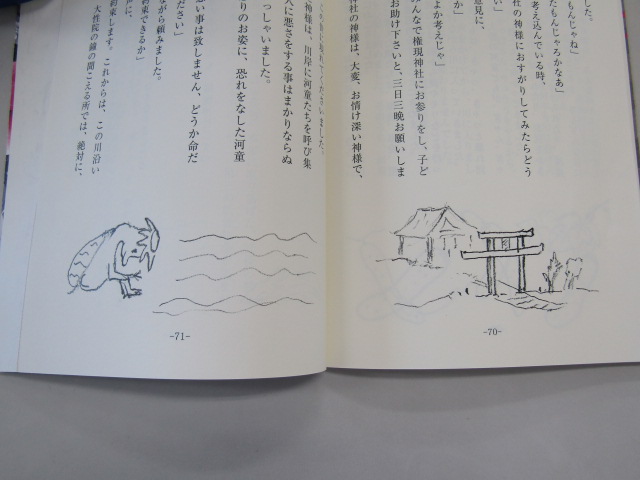 ました。
もんじゃね」
たもんじゃろかなあ」
考え込んでいる時、
社の神様におすがりしてみたらどう
か」
意見に、
よか考えじゃ」
みんなで権現神社にお参りをし、子ど
お助け下さいと、三日三晩お願いしま
社の神様は、大変、お情け深い神様で、
-70-
神様は、川岸に河童たちを呼び集
人に悪さをする事はまかりならぬ
っしゃいました。
りのお姿に、恐れをなした河童
い事は致しません、どうか命だ
ださい」
ながら頼みました。
約束できるか」
約束します。これからは、この川沿い
大性院の鐘の聞こえる所では、絶対に、
-71-